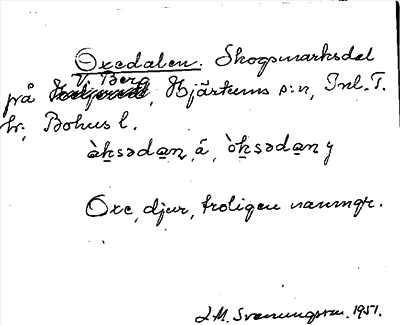 Oxedalen. Skogsmarksdel
V. Berg
på, Hjärtums s:n, Inl. T.
hr, Bohus l.
àk̠sədan̠, ä, òk̠sədan̠ y
Oxe, djur, troligen namngr.
J. M. Svenungsson. 1951.